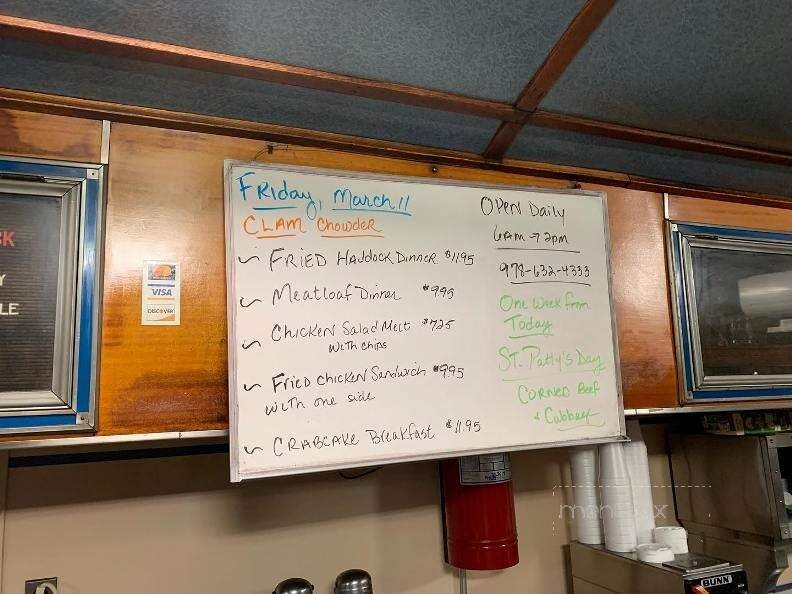 Friday, March 11
CLAM Chowder
~ FRIED Haddock Dinner $11.95
~ Meatloaf Dinner $9.95
~ Chicken Salad Melt $7.25
with chips
~ Fried chicken Sandwich $9.95
with one side
~ CRABCAKE Breakfast $11.95
OPEN Daily
6AM → 2pm
978-632-4333
One Week from
Today
ST. Patty's Day
CORNED Beef
& Cabbage
VISA
DISCOVER
BUNN